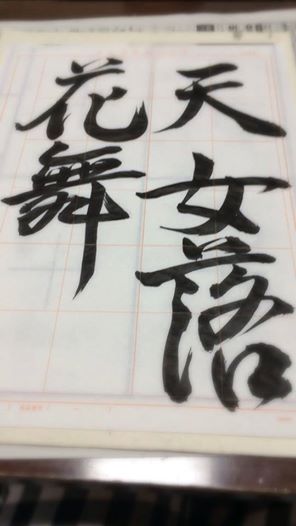 天女落
花舞